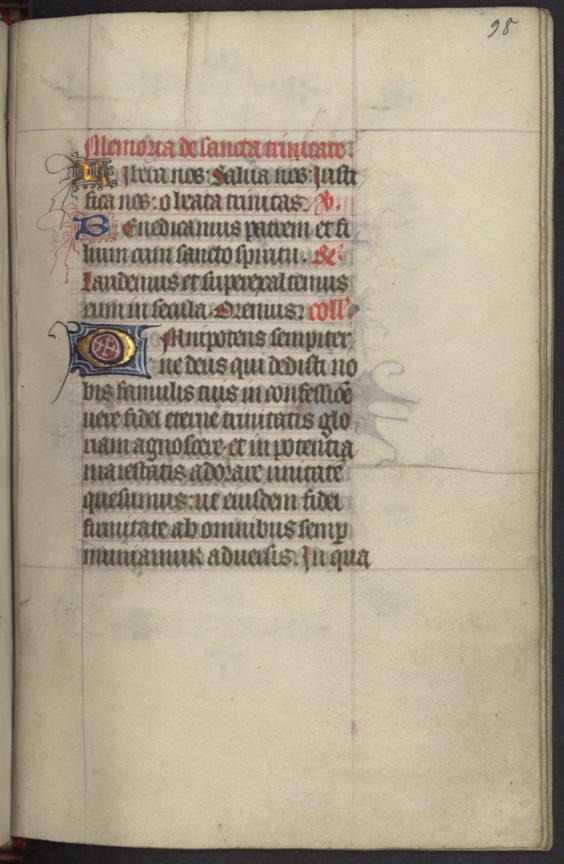 98
Memoria de sancta trinitate.
Libera nos. Salua nos. Justi
fica nos. o beata trinitas. V.
Benedicamus patrem et fi
lium cum sancto spiritu. R.
Laudemus et superexaltemus
eum in secula. Oremus. coll'.
Omnipotens sempiter
ne deus qui dedisti no
bis famulis tuis in confessiõe
uere fidei eterne trinitatis glo
riam agnoscere. et in potentia
maiestatis adorare unitatẽ
quesumus. ut eiusdem fidei
firmitate ab omnibus semp̲
muniamur aduersis. In qua